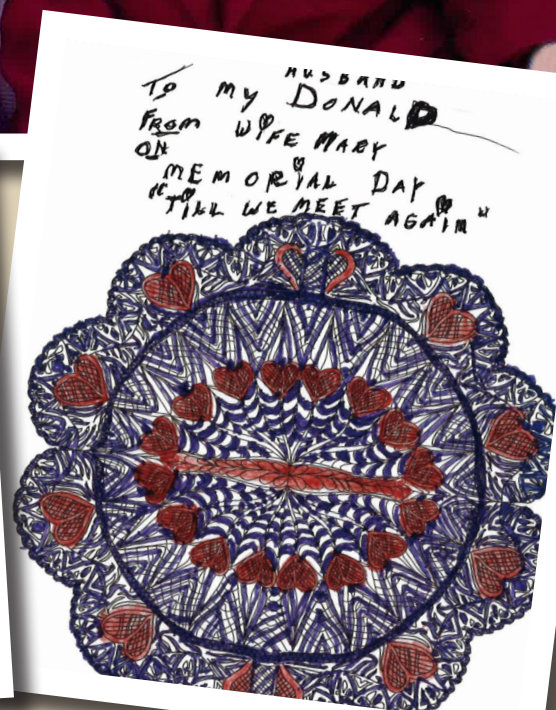 HUSBAND
To my DONALD
FROM WIFE MARY
ON
MEMORIAL DAY
"TILL WE MEET AGAIN"